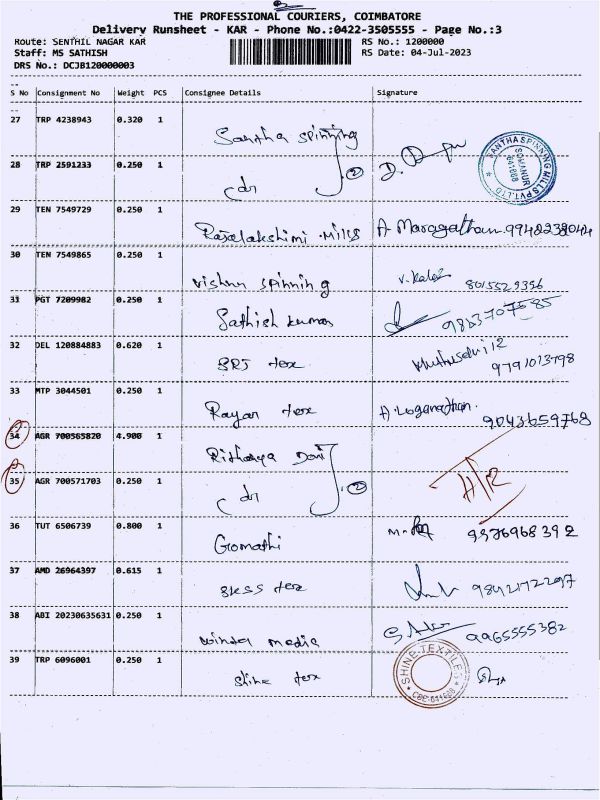 THE PROFESSIONAL COURIERS, COIMBATORE
Delivery Runsheet - KAR - Phone No.:0422-3505555 - Page No.:3
Route: SENTHIL NAGAR KAR RS No.: 1200000
Staff: MS SATHISH RS Date: 04-Jul-2023
DRS No.: DCJB120000003
S No Consignment No Weight PCS Consignee Details Signature
27 TRP 4238943 0.320 1 Santha spinning
SANTHA SPINNING MILLS PVT.LTD SOMANUR 641668
28 TRP 2591233 0.250 1 do 2
29 TEN 7549729 0.250 1 Rajalakshimi Mills A. Maragatham
30 TEN 7549865 0.250 1 Vishnu Spinning 8015529396
31 PGT 7209982 0.250 1 Sathish kumar
32 DEL 120884883 0.620 1 SRJ tex 9791013798
33 MTP 3044501 0.250 1 Rayan tex A. Loganathan 9043659768
34 AGR 700565820 4.900 1
35 AGR 700571703 0.250 1 do 2
36 TUT 6506739 0.800 1 Gomathi
37 AMD 26964397 0.615 1 tex
38 ABI 20230635631 0.250 1 media 9965555382
39 TRP 6096001 0.250 1 Shine tex
SHINE TEXTILES CBE-641668